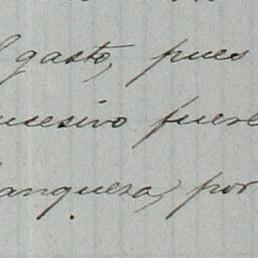 l gasto, pues
ucesivo fuese
anqueza, por